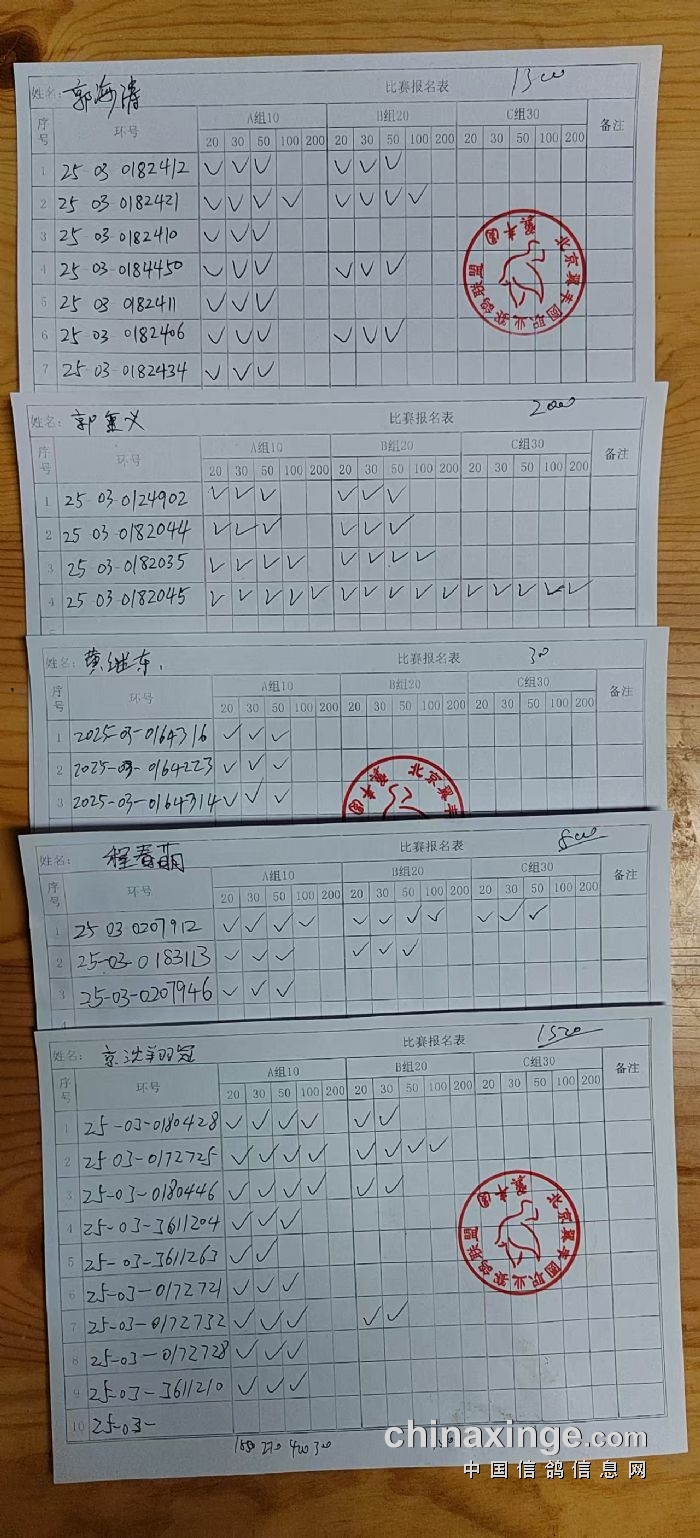 姓名: 郭海涛 比赛报名表 1300
序号 环号 A组10 B组20 C组30 备注
20 30 50 100 200 20 30 50 100 200 20 30 50 100 200
1 25-03-0182412 ✓ ✓ ✓ ✓ ✓ ✓
2 25-03-0182421 ✓ ✓ ✓ ✓ ✓ ✓ ✓ ✓
3 25-03-0182410 ✓ ✓ ✓
4 25-03-0184450 ✓ ✓ ✓ ✓ ✓ ✓
5 25-03-0182411 ✓ ✓ ✓
6 25-03-0182406 ✓ ✓ ✓ ✓ ✓ ✓
7 25-03-0182434 ✓ ✓ ✓
北京翼丰园职业赛鸽联盟
姓名: 郭 义 比赛报名表 2000
序号 环号 A组10 B组20 C组30 备注
20 30 50 100 200 20 30 50 100 200 20 30 50 100 200
1 25-03-0124902 ✓ ✓ ✓ ✓ ✓ ✓
2 25-03-0182044 ✓ ✓ ✓ ✓ ✓ ✓
3 25-03-0182035 ✓ ✓ ✓ ✓ ✓ ✓ ✓ ✓
4 25-03-0182045 ✓ ✓ ✓ ✓ ✓ ✓ ✓ ✓ ✓ ✓ ✓ ✓ ✓ ✓ ✓
姓名: 黄继东. 比赛报名表 300
序号 环号 A组10 B组20 C组30 备注
20 30 50 100 200 20 30 50 100 200 20 30 50 100 200
1 2025-03-0164316 ✓ ✓ ✓
2 2025-03-0164223 ✓ ✓ ✓
3 2025-03-0164314 ✓ ✓ ✓
姓名: 程春萌 比赛报名表 800
序号 环号 A组10 B组20 C组30 备注
20 30 50 100 200 20 30 50 100 200 20 30 50 100 200
1 25-03-0207912 ✓ ✓ ✓ ✓ ✓ ✓ ✓ ✓ ✓ ✓ ✓
2 25-03-0183113 ✓ ✓ ✓ ✓ ✓ ✓
3 25-03-0207946 ✓ ✓ ✓
4
姓名: 京沈翔冠 比赛报名表 1520
序号 环号 A组10 B组20 C组30 备注
20 30 50 100 200 20 30 50 100 200 20 30 50 100 200
1 25-03-0180428 ✓ ✓ ✓ ✓ ✓ ✓
2 25-03-0172725 ✓ ✓ ✓ ✓ ✓ ✓ ✓ ✓
3 25-03-0180446 ✓ ✓ ✓ ✓ ✓ ✓
4 25-03-3611204 ✓ ✓ ✓
5 25-03-3611263 ✓ ✓
6 25-03-0172721 ✓ ✓ ✓
7 25-03-0172732 ✓ ✓ ✓ ✓ ✓
8 25-03-0172728 ✓ ✓ ✓
9 25-03-3611210 ✓ ✓ ✓
10 25-03-
北京翼丰园职业赛鸽联盟
chinaxinge.com
中国信鸽信息网